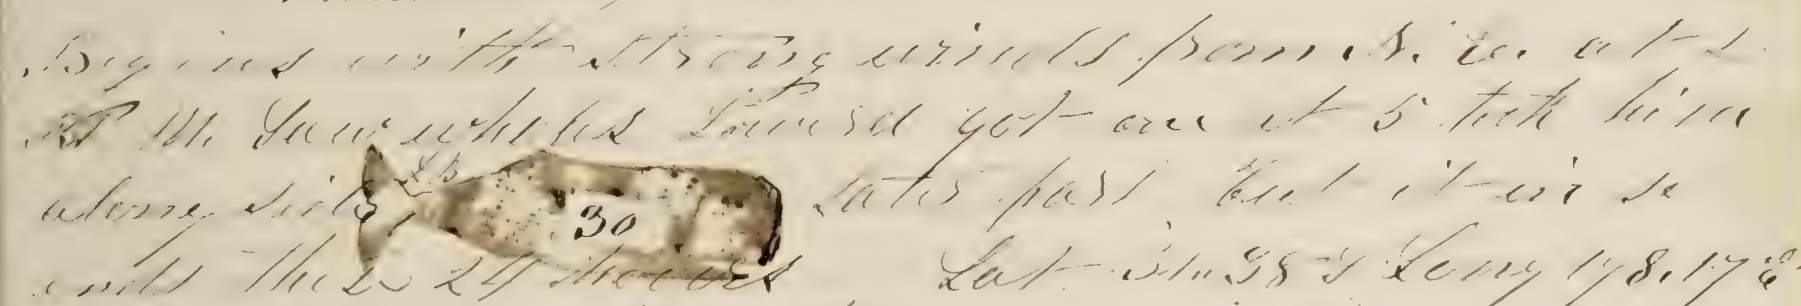 Begins with strong winds from S. W. at 2
P M Saw whales Lowered got one at 5 took him
along side L B 30 Later part Cut it in so
ends these 24 hours Lat 31..38 S Long 178,17